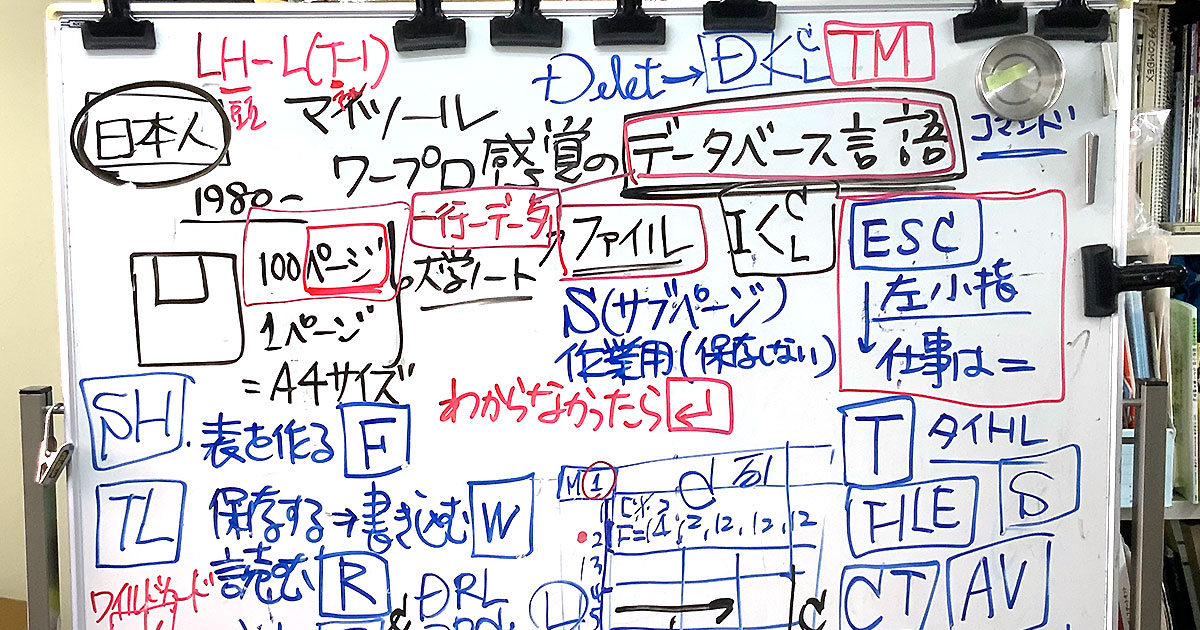 LH-L(T-1)
Delet→DくCL
TM
日本人
頭
マイツール
ワープロ感覚のデータベース言語
コマンド
1980〜
一行一データ
ファイル
IくCL
ESC
100ページの大学ノート
左小指
1ページ
S(サブページ)
仕事は=
作業用(保存しない)
=A4サイズ
わからなかったら↵
SH
表を作る F
T タイトル
TL
保存する→書き込む W
M1
C列
FILE
S
F=(4,2,12,12,12
2
読む R
3
ワイルドカード
DRL
L
4
5
C
CT
AV
&